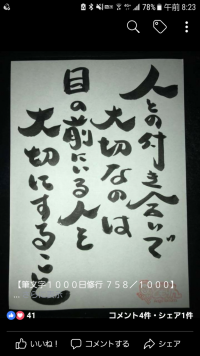 78% 午前 8:23
人との付き合いで
大切なのは
目の前にいる人を
大切にすること
【筆文字1000日修行 758/1000】
41
コメント4件・シェア1件
いいね!
コメントする
シェア